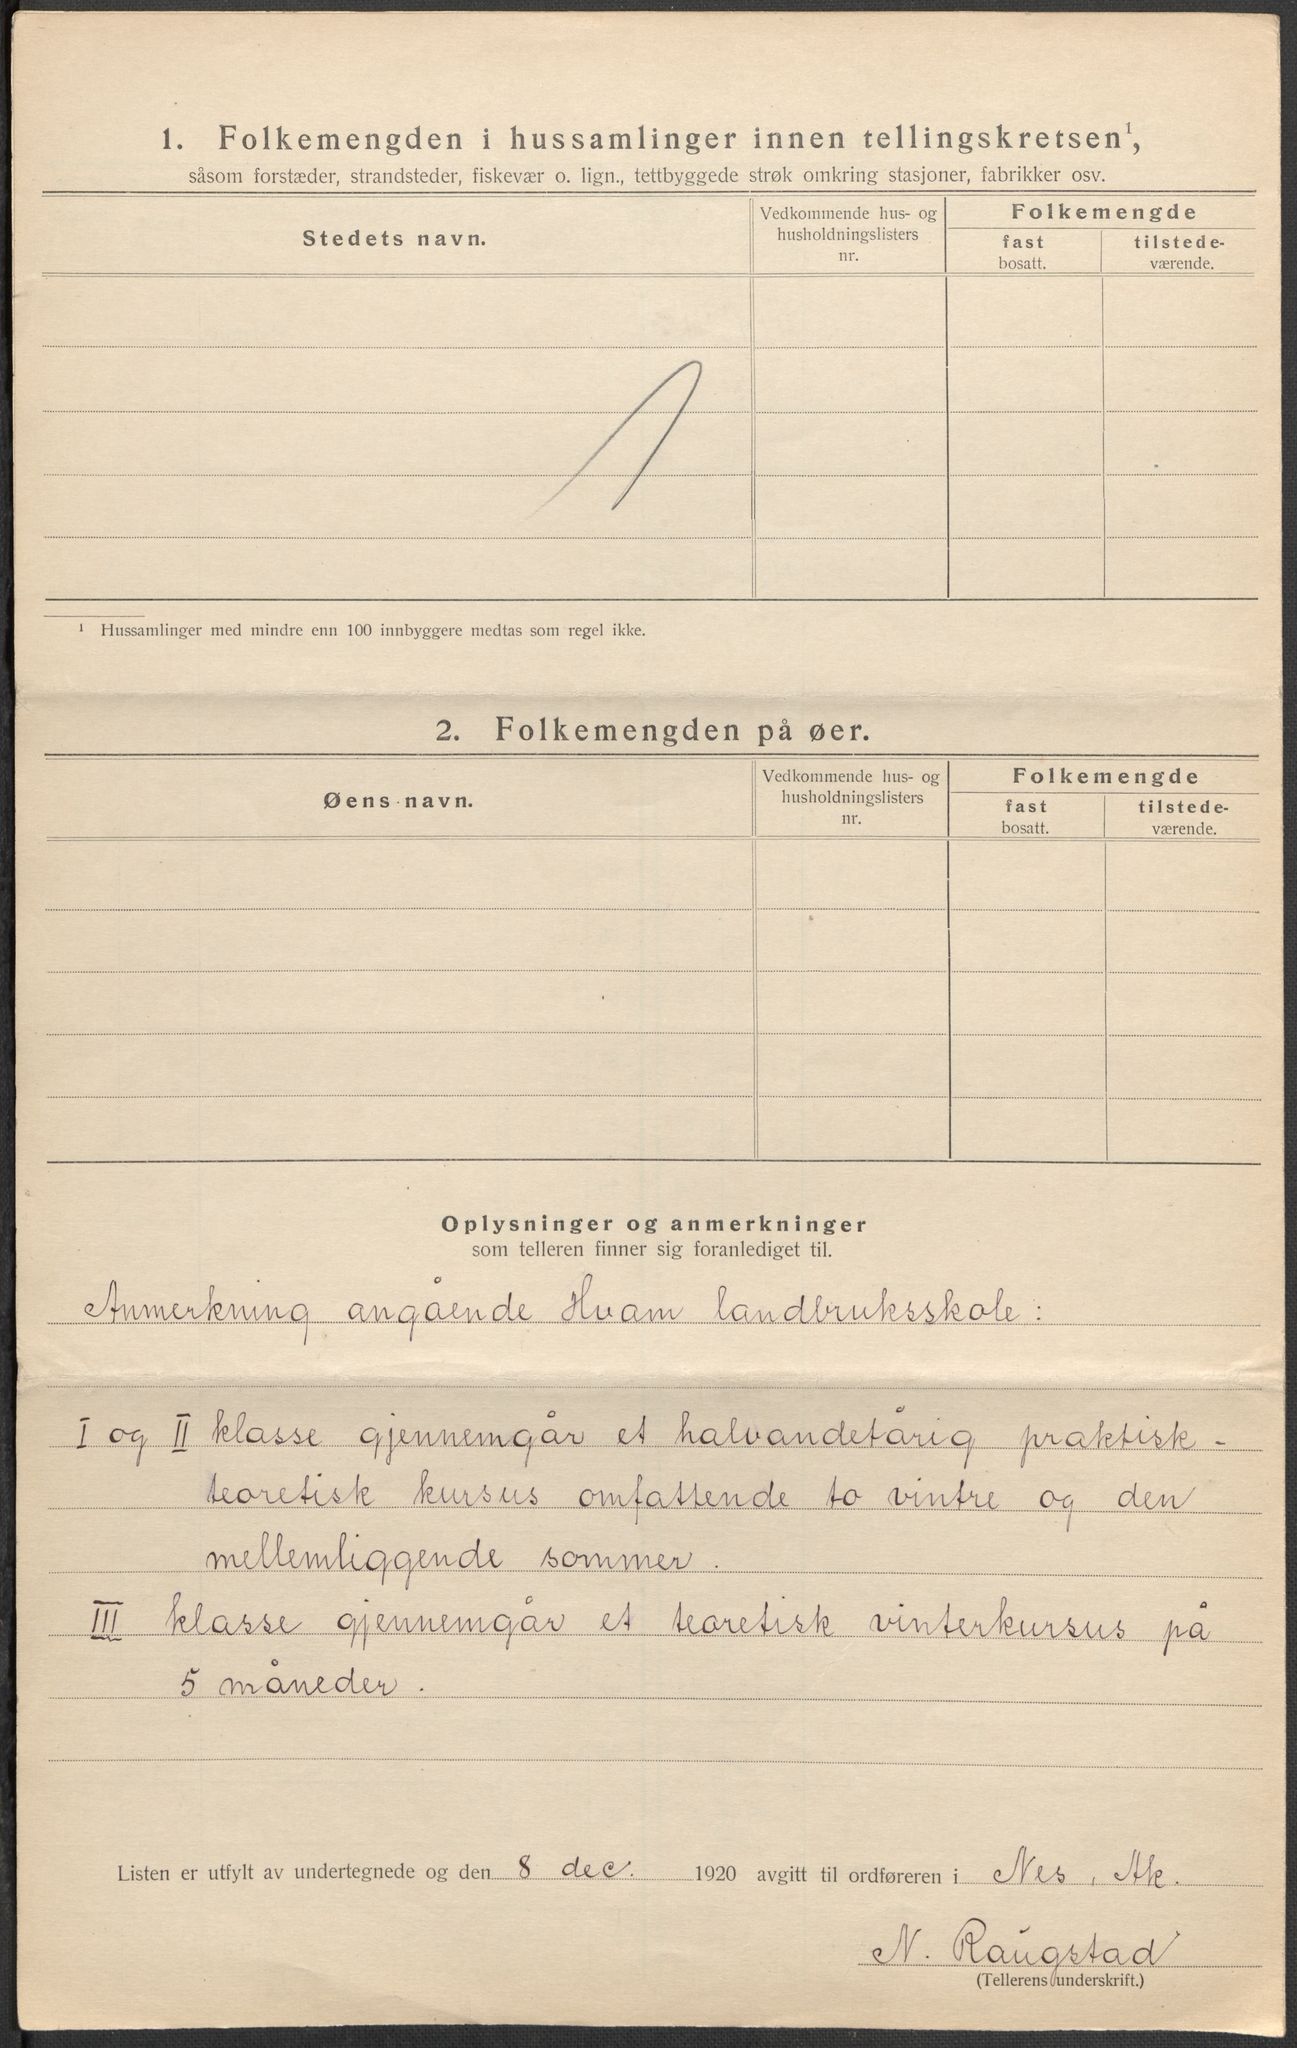 1. Folkemengden i hussamlinger innen tellingskretsen¹,
såsom forstæder, strandsteder, fiskevær o. lign., tettbyggede strøk omkring stasjoner, fabrikker osv.
Stedets navn.
Vedkommende hus- og
husholdningslisters
nr.
Folkemengde
fast
bosatt.
tilstede-
værende.
¹ Hussamlinger med mindre enn 100 innbyggere medtas som regel ikke.
2. Folkemengden på øer.
Øens navn.
Vedkommende hus- og
husholdningslisters
nr.
Folkemengde
fast
bosatt.
tilstede-
værende.
Oplysninger og anmerkninger
som telleren finner sig foranlediget til.
Anmerkning angående Hvam landbruksskole:
I og II klasse gjennemgår et halvandetårig praktisk-
teoretisk kursus omfattende to vintre og den
mellemliggende sommer.
III klasse gjennemgår et teoretisk vinterkursus på
5 måneder.
Listen er utfylt av undertegnede og den 8 dec. 1920 avgitt til ordføreren i Nes, Ak.
N. Raugstad
(Tellerens underskrift.)